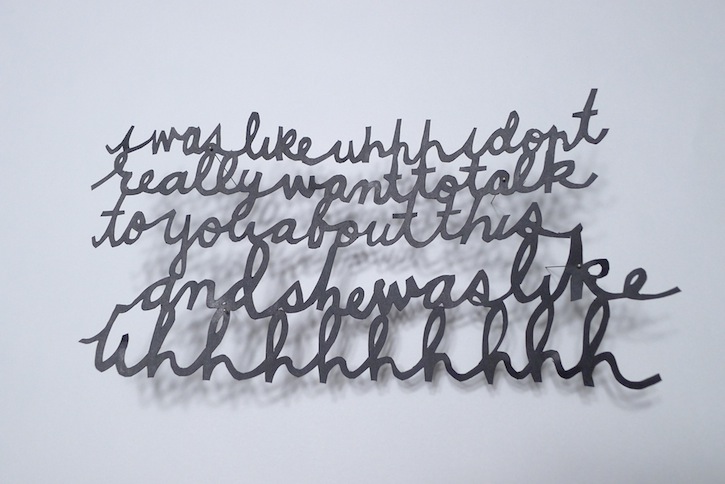 i was like uhhh i dont
really want to talk
to you about this
and she was like
Uhhhhhhhhh